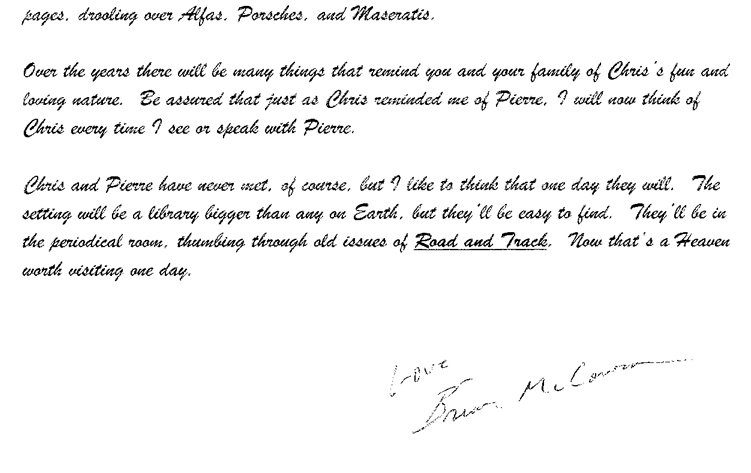 pages, drooling over Alfas, Porsches, and Maseratis.
Over the years there will be many things that remind you and your family of Chris's fun and
loving nature. Be assured that just as Chris reminded me of Pierre, I will now think of
Chris every time I see or speak with Pierre.
Chris and Pierre have never met, of course, but I like to think that one day they will. The
setting will be a library bigger than any on Earth, but they'll be easy to find. They'll be in
the periodical room, thumbing through old issues of Road and Track. Now that's a Heaven
worth visiting one day.
Love
Brian